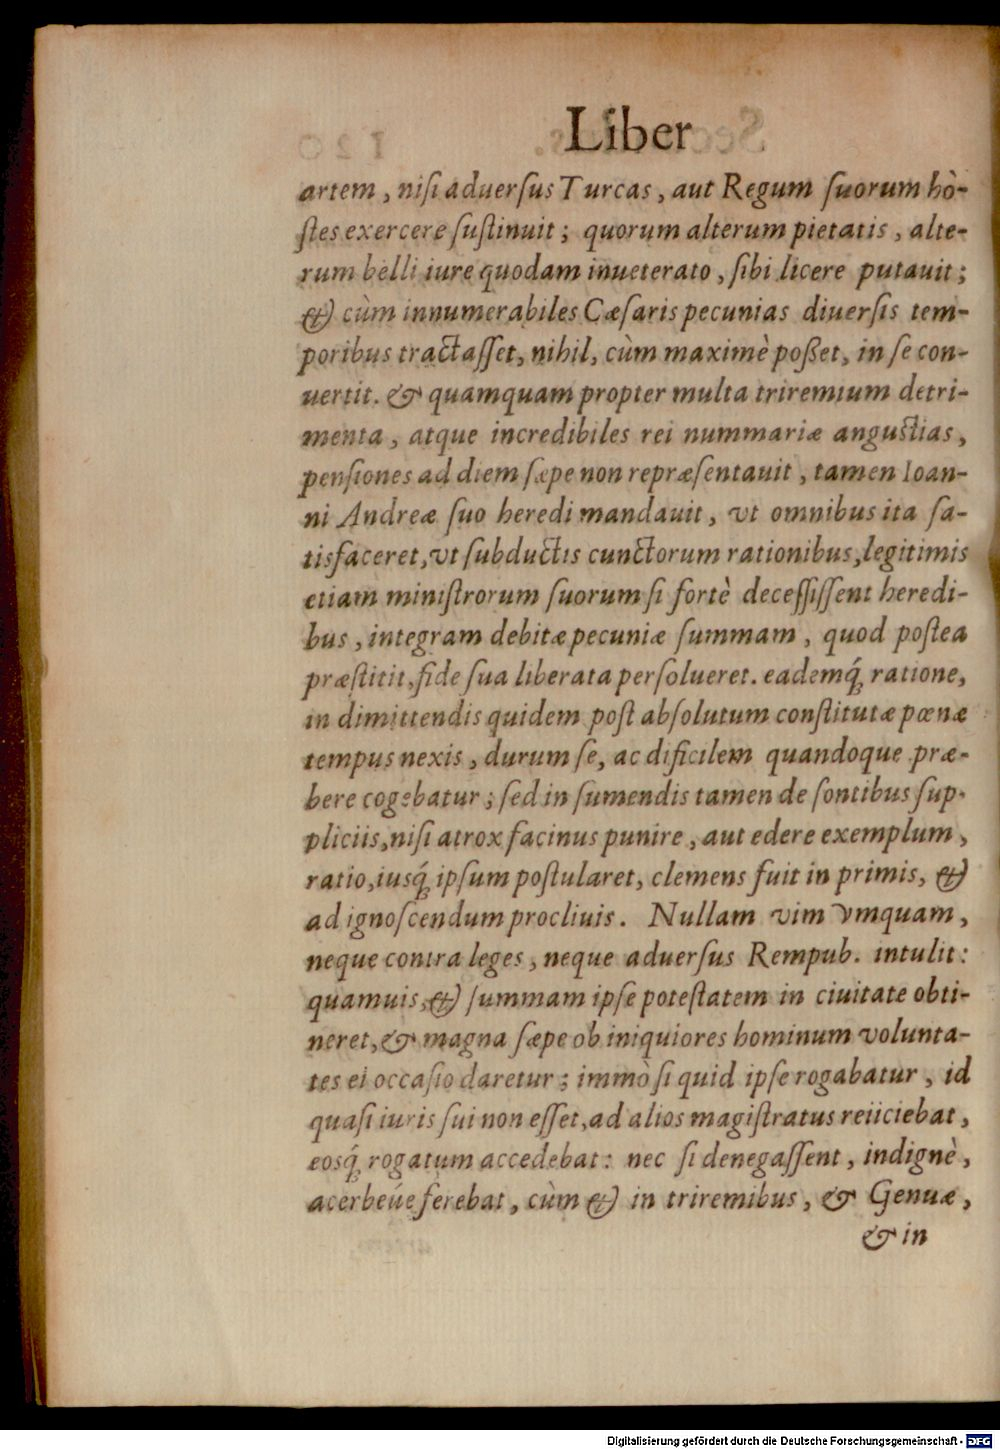 Liber
artem, niſi aduerſus Turcas, aut Regum ſuorum hò-
ſtes exercere ſuſtinuit; quorum alterum pietatis, alte-
rum belli iure quodam inueterato, ſibi licere putauit;
& cùm innumerabiles Cæſaris pecunias diuerſis tem-
poribus tractaſſet, nihil, cùm maximè poßet, in ſe con-
uertit. & quamquam propter multa triremium detri-
menta, atque incredibiles rei nummariæ anguſtias,
penſiones ad diem ſæpe non repræſentauit, tamen Ioan-
ni Andreæ ſuo heredi mandauit, vt omnibus ita ſa-
tisfaceret, vt ſubductis cunctorum rationibus, legitimis
etiam miniſtrorum ſuorum ſi fortè deceſſiſſent heredi-
bus, integram debitæ pecuniæ ſummam, quod poſtea
præſtitit, fide ſua liberata perſolueret. eademq́; ratione,
in dimittendis quidem poſt abſolutum conſtitutæ pœnæ
tempus nexis, durum ſe, ac dificilem quandoque præ-
bere cogebatur; ſed in ſumendis tamen de ſontibus ſup-
pliciis, niſi atrox facinus punire, aut edere exemplum,
ratio, iusq́; ipſum poſtularet, clemens fuit in primis, &
ad ignoſcendum procliuis. Nullam vim vmquam,
neque contra leges, neque aduerſus Rempub. intulit:
quamuis, & ſummam ipſe poteſtatem in ciuitate obti-
neret, & magna ſæpe ob iniquiores hominum volunta-
tes ei occaſio daretur; immò ſi quid ipſe rogabatur, id
quaſi iuris ſui non eſſet, ad alios magiſtratus reiiciebat,
eosq́; rogatum accedebat: nec ſi denegaſſent, indignè,
acerbeúe ferebat, cùm & in triremibus, & Genuæ,
& in
Digitalisierung gefördert durch die Deutsche Forschungsgemeinschaft - DFG